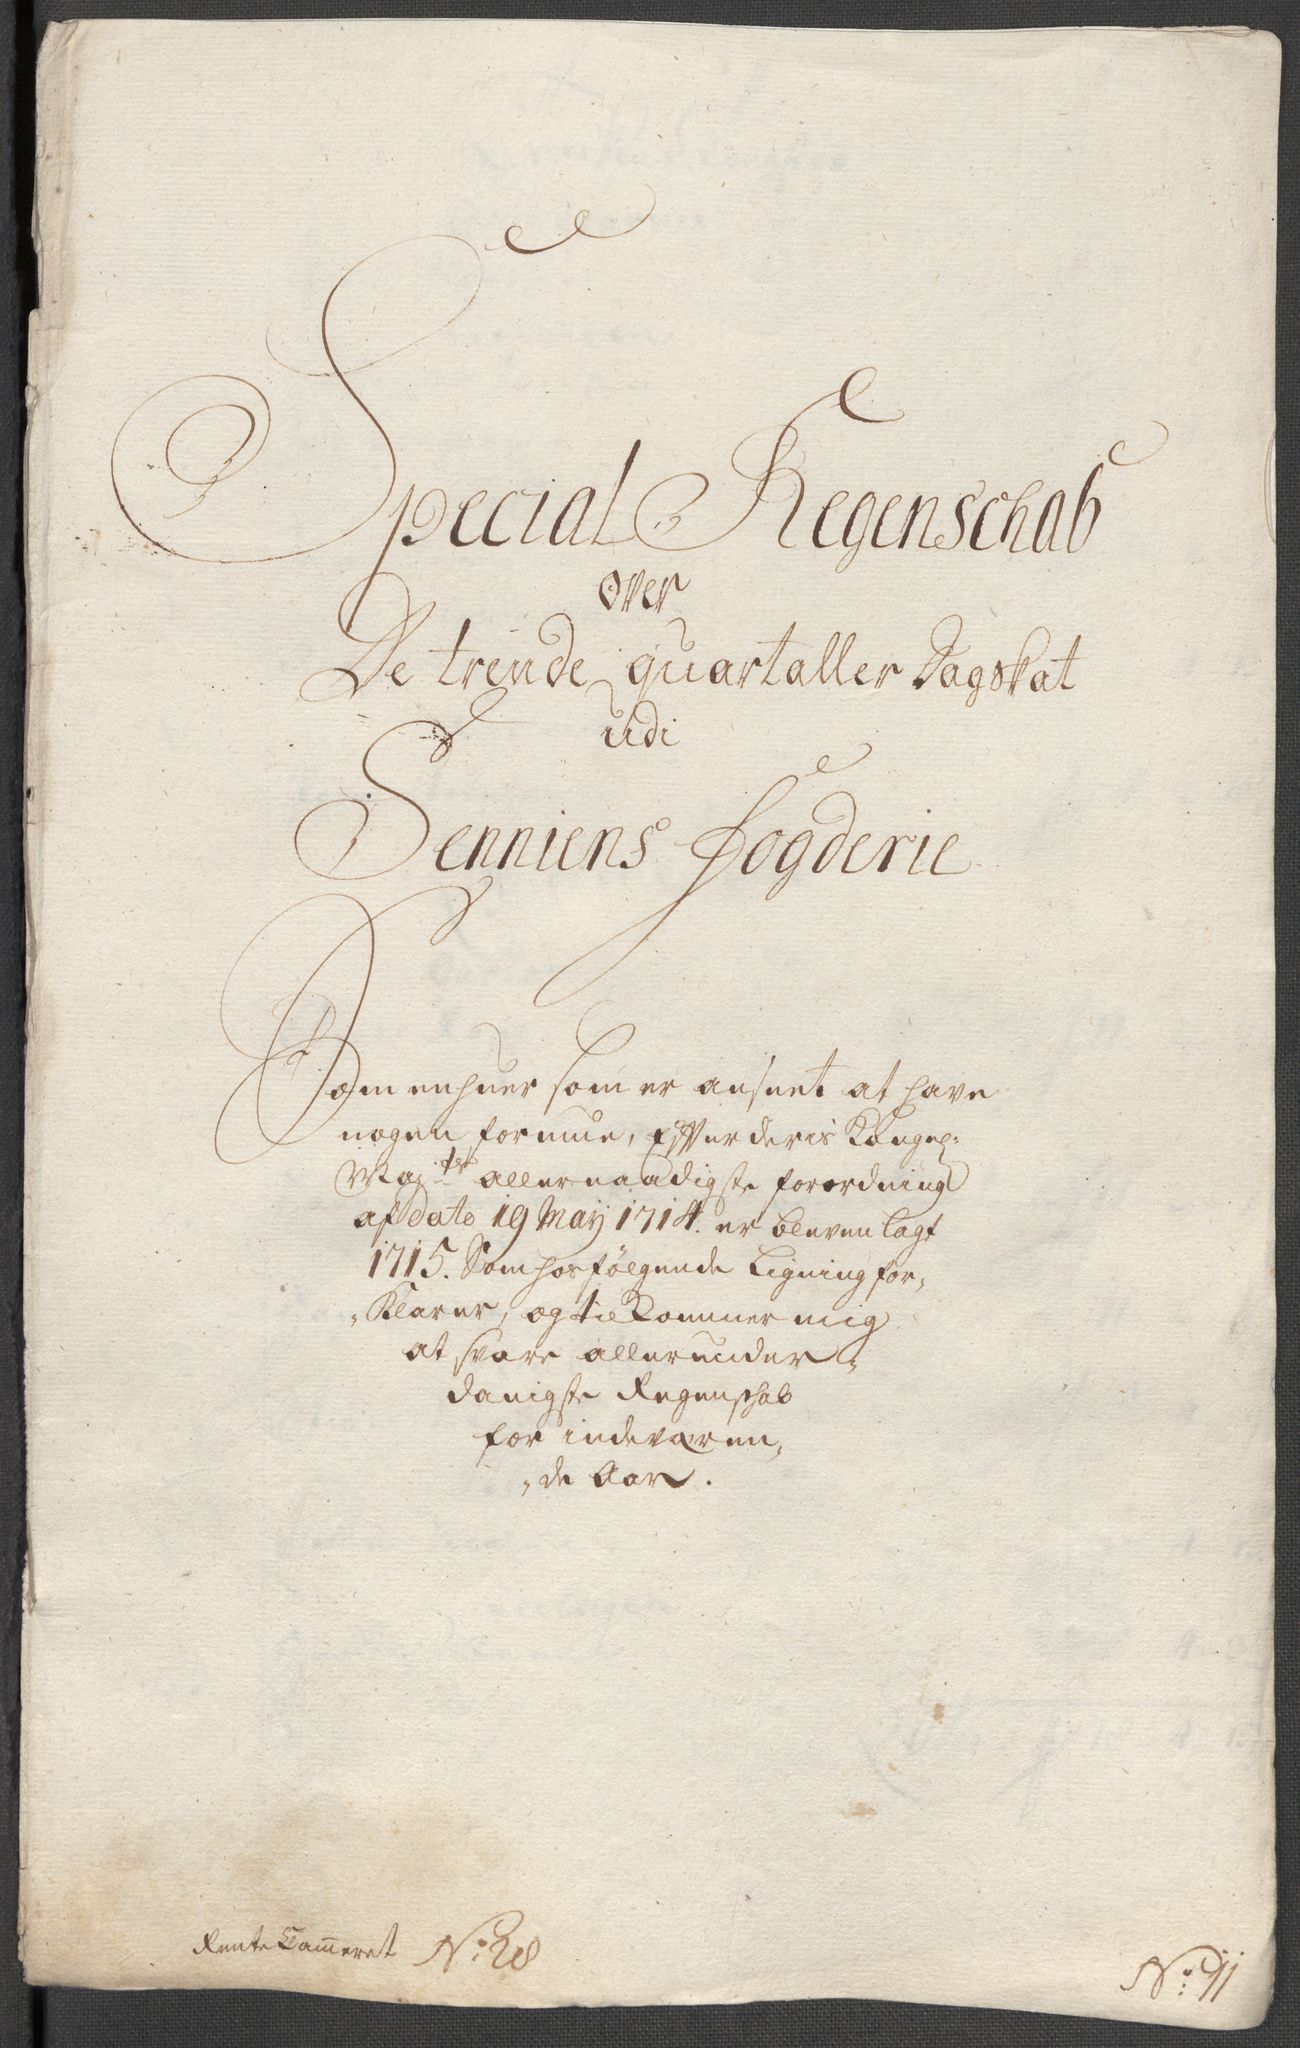 Special Regenschab
over
De trende quartaller Dagskat
udi
Senniens fogderie
Som enhuer som er ansuet at have
nogen formue, Efter deris Kongel:
May:ts allernaadigste forordning
af dato 19 May 1714. er bleven lagt
1715. Som hosfølgende Ligning for,
,Klarer, og til Kommer mig
at svare allerunder,
danigste Regenschab
for indeværen,
,de Aar.
Rente Cammeret No: 28
No: 11